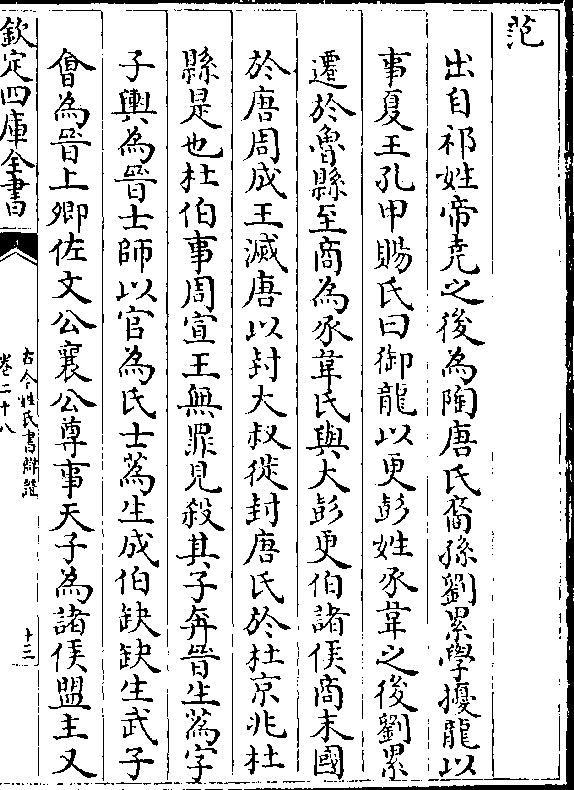 范
出自祁姓帝尭之後為陶唐氏裔孫劉累學擾龍以
事夏王孔甲賜氏曰御龍以更彭姓豕韋之後劉累
遷於魯縣至商為豕韋氏與大彭更伯諸侯商末國
於唐周成王滅唐以封大叔徙封唐氏於杜京兆杜
縣是也杜伯事周宣王無罪見殺其子奔晉生蒍字
子輿為晉士師以官為氏士蒍生成伯缺缺生武子
會為晉上卿佐文公襄公尊事天子為諸侯盟主又
欽定四庫全書
古今姓氏書辯證
卷二十八
十三